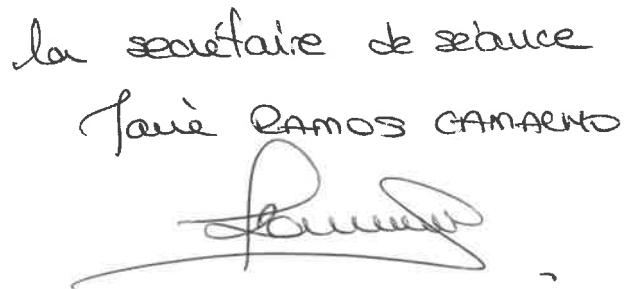 la secrétaire de séance
Marie RAMOS CAMACHO